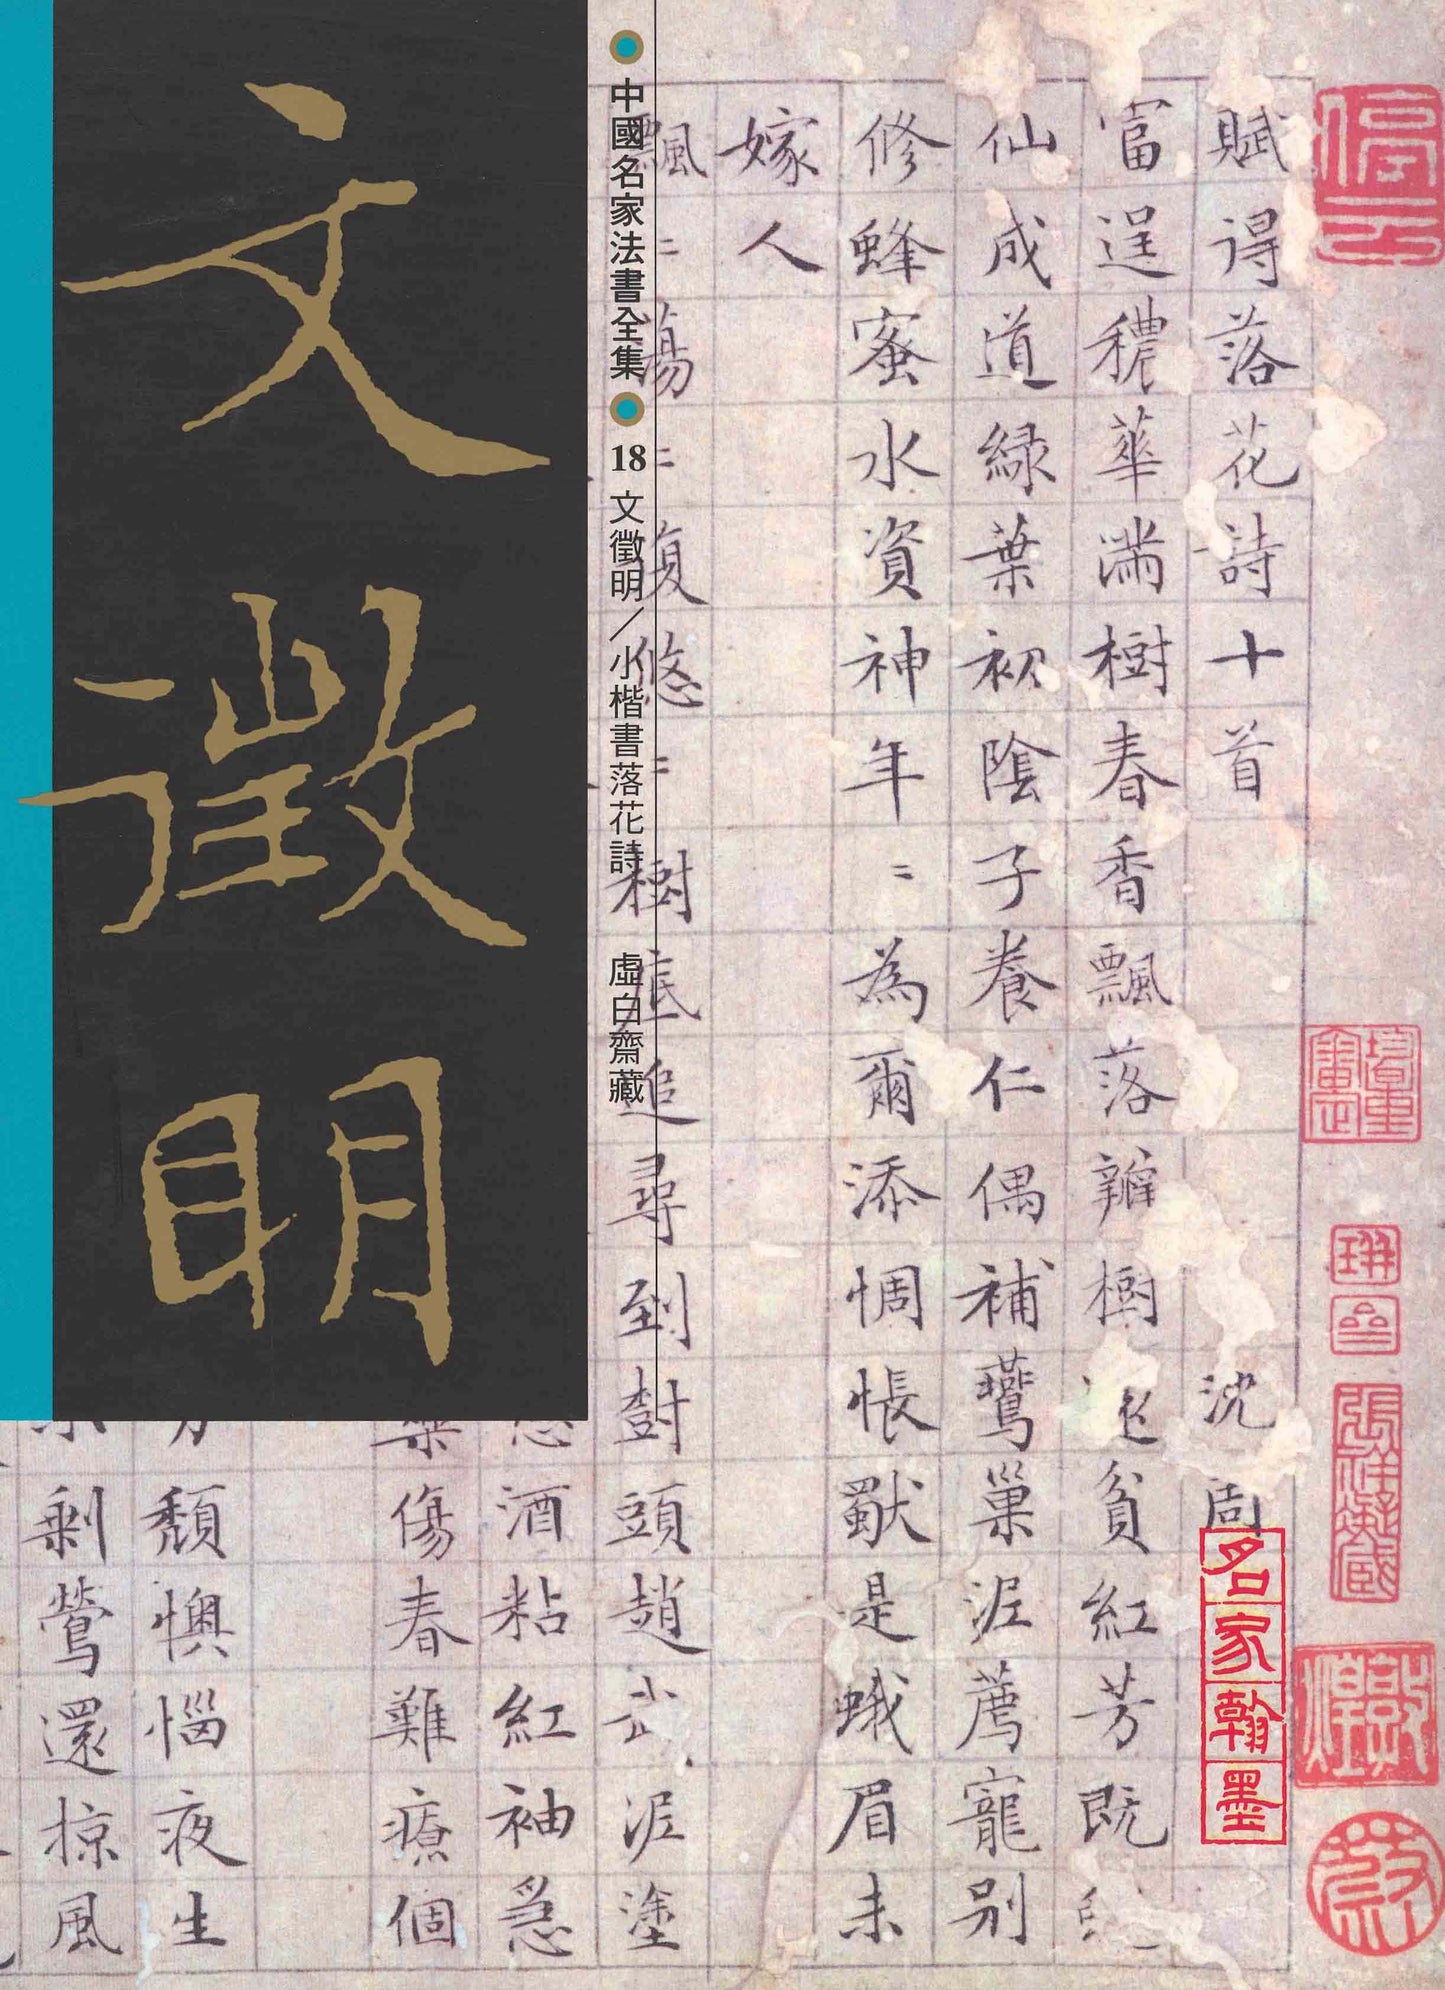 文徵明
中國名家法書全集
18 文徵明／小楷書落花詩 虛白齋藏
賦得落花詩十首 沈周
富逞穠華滿樹春香飄落瓣樹還貧紅芳既
仙成道綠葉初陰子養仁偶補鶯巢泥薦寵別
修蜂蜜水資神年〻為爾添惆悵獸是蛾眉未
嫁人
飄〻蕩〻復悠〻樹底追尋到樹頭趙武泥塗
酒粘紅袖急
藥傷春難療個
方頹懊惱夜生
剩鶯還掠風
名家翰墨